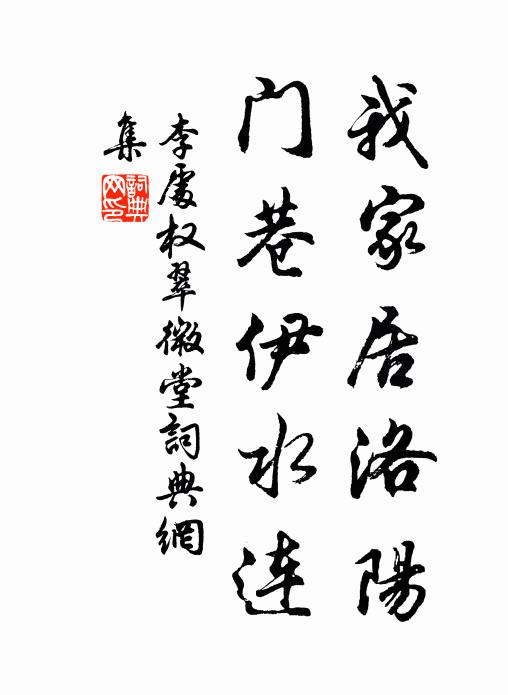 我家居洛陽
门巷伊水連
李處权翠微堂詞典網
集
詞典网印